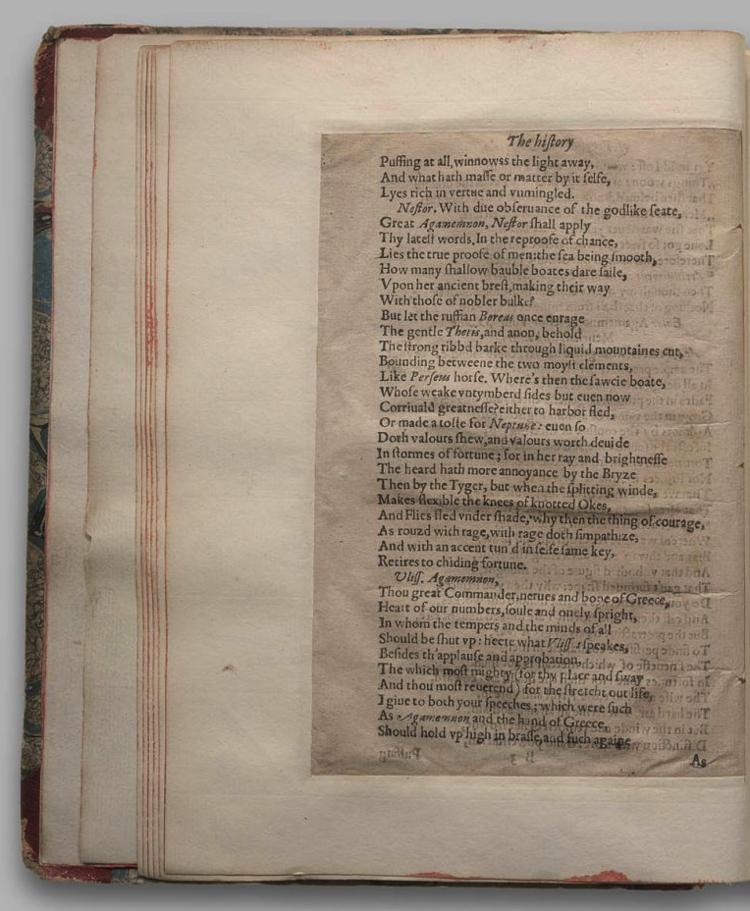 The hiſtory
Puffing at all, winnowss the light away,
And what hath maſſe or matter by it ſelfe,
Lyes rich in vertue and vnmingled.
Neſtor. With due obſeruance of the godlike ſeate,
Great Agamemnon, Neſtor ſhall apply
Thy lateſt words, In the reproofe of chance,
Lies the true proofe of men: the ſea being ſmooth,
How many ſhallow bauble boates dare ſaile,
Vpon her ancient breſt, making their way
With thoſe of nobler bulke?
But let the ruffian Boreas once enrage
The gentle Thetis, and anon, behold
The ſtrong ribbd barke through liquid mountaines cut,
Bounding betweene the two moyſt elements,
Like Perſeus horſe. Where's then the ſawcie boate,
Whoſe weake vntymberd ſides but euen now
Corriuald greatneſſe? either to harbor fled,
Or made a toſte for Neptune: euen ſo
Doth valours ſhew, and valours worth deuide
In ſtormes of fortune; for in her ray and brightneſſe
The heard hath more annoyance by the Bryze
Then by the Tyger, but when the ſplitting winde,
Makes flexible the knees of knotted Okes,
And Flies fled vnder ſhade, why then the thing of courage,
As rouzd with rage, with rage doth ſimpathize,
And with an accent tun'd in ſelfe ſame key,
Retires to chiding fortune.
Vliſſ. Agamemnon,
Thou great Commander, nerues and bone of Greece,
Heart of our numbers, ſoule and onely ſpright,
In whom the tempers and the minds of all
Should be ſhut vp: heere what Vliſſes ſpeakes,
Beſides th'applauſe and approbation,
The which moſt mighty (for thy place and ſway
And thou moſt reuerend) for the ſtretcht out life,
I giue to both your ſpeeches; which were ſuch
As Agamemnon and the hand of Greece,
Should hold vp high in braſſe, and ſuch againe
As